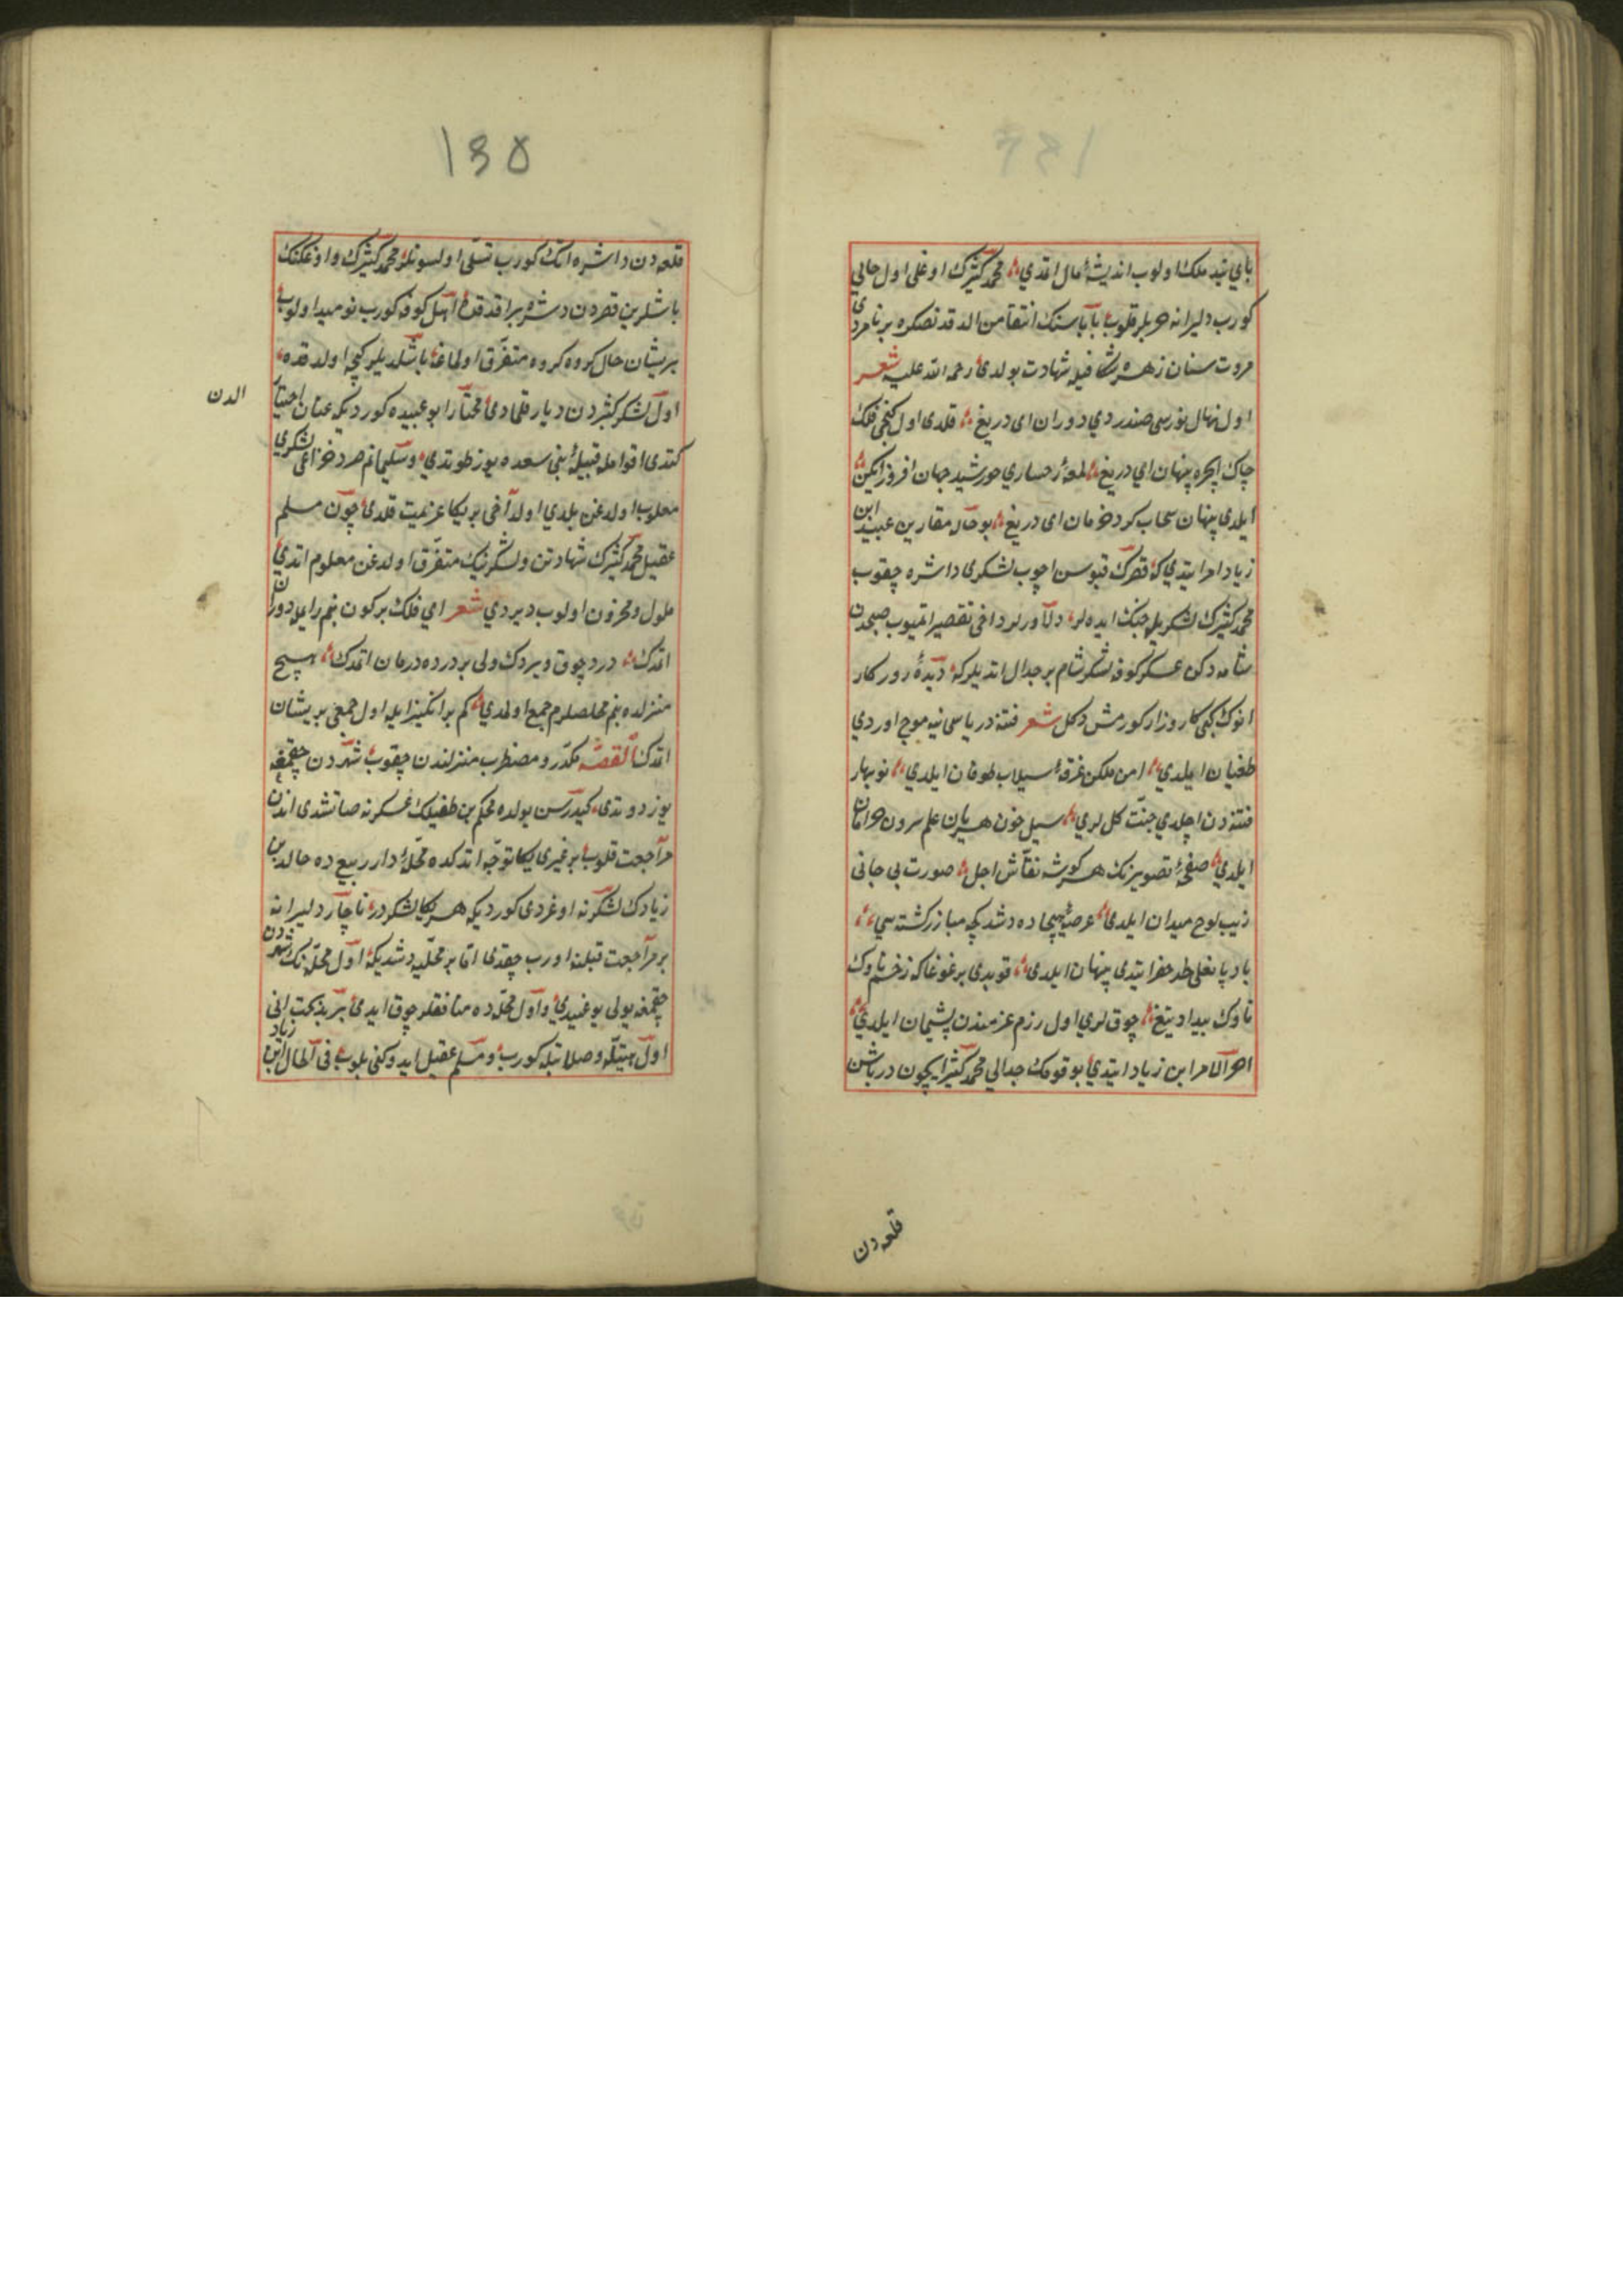 باي بند ملك اولوب انديشۀ مال اتمدي محمد كثيرك اوغلى اول حالي
كورب دليرانه حربلر قلوب باباسنك انتقامن الدقدنصكره بر نامردى
مروت سنان زهره شكافيله شهادت بولدى رحمه الله عليه شعر
اول نهال نورسى صندردي دوران اى دريغ قلدى اول كنجى فلك
چاك ايچره پنهان اي دريغ لمعۀ رخساري خورشيد جهان افروز ايكن
ايلدى پنهان سحاب كرد حرمان اى دريغ بو حاله مقارن عبيد ابن
زياد امر ايتدي كه قصرك قپوسن اچوب لشكرى داشره چقوب
محمد كثيرك لشكريله جنك ايده لر دلاورلر داخى تقصير اتميوب صبحدن
شامه دكن عسكر كوفه لشكر شام بر جدال اتديلركه ديدۀ روزكار
انوك كبى كارزار كورمش دكل شعر فتنه درياسى ينه موج اوردي
طغيان ايلدي امن ملكن غرقۀ سيلاب طوفان ايلدي نوبهار
فتنه دن اچلدي جنت كل لري سيل خون هر يان علم سرون خرامان
ايلدي صفحۀ تصويرنك هر كوشه نقاش اجل صورت بى جانى
زيب لوح ميدان ايلدى عرصۀ هيجاده دشدى چه مبارز كشته سي
باد پا نعلى لحد حفر ايتدى پنهان ايلدى قوپدى بر غوغا كه زخم ناوك
ناوك بيداد تيغ چوق لري اول رزم عزمندن پشيمان ايلدي
اخر الامر ابن زياد ايتدي بو قومك جدالي محمد كثير ايچون در باشن
قلعه دن
135
قلعه دن داشره اتك كورب تسلى اولسونلر محمد كثيرك واوغلنك
باشلرين قصردن دشره براقدقده اهل كوفه كورب نوميد اولوب
پريشان حال كروه كروه متفرق اولماغا باشلديلر كيچه اولدقده
اول لشكر كثيردن ديار قلمادى مختار ابو عبيده كورديكه عنان اختيار
الدن
كتدى اقوامله قبيلۀ بنى سعده يوز طوتدي وسليمانم صرد خزاعى لشكرى
مغلوب اولدغن بلدي اولداخى بر يكا عزيمت قلدى چون مسلم
عقيل محمد كثيرك شهادتن ولشكرنيك متفرق اولدغن معلوم اتدي
ملول ومحزون اولوب ديردي شعر اي فلك بر كون بنم رايمله دوران
اتمدك درد چوق ويردك ولى بر درده درمان اتمدك هيچ
منزلده بنم مخلصلرم جمع اولمدي كم بر انكيز ايله اول جمعى پريشان
اتمدك القصه مكدر ومضطرب منزلندن چقوب شهردن چقمغه
يوز دوتدى كيدرسن يولده محكم بن طفيلك عسكرنه صاتشدى اندن
مراجعت قلوب بر غيرى يكا توجه اتدكده محلۀ دار ربيع ده خالد بن
زيادك لشكرنه اوغردى كورديكه هر يكا لشكردر ناچار دليرانه
بر مراجعت قبلنه اورب چقدى اما بر محلّه دشديكه اول محله نك شهردن
چقمغه يولى يوغيدي واول محله ده منافقلر چوق ايدى بر بدبخت انى
اول هيبتله وصلابتله كورب ومسلم عقيل ايدوكنى بلوب فى الحال ابن زياد